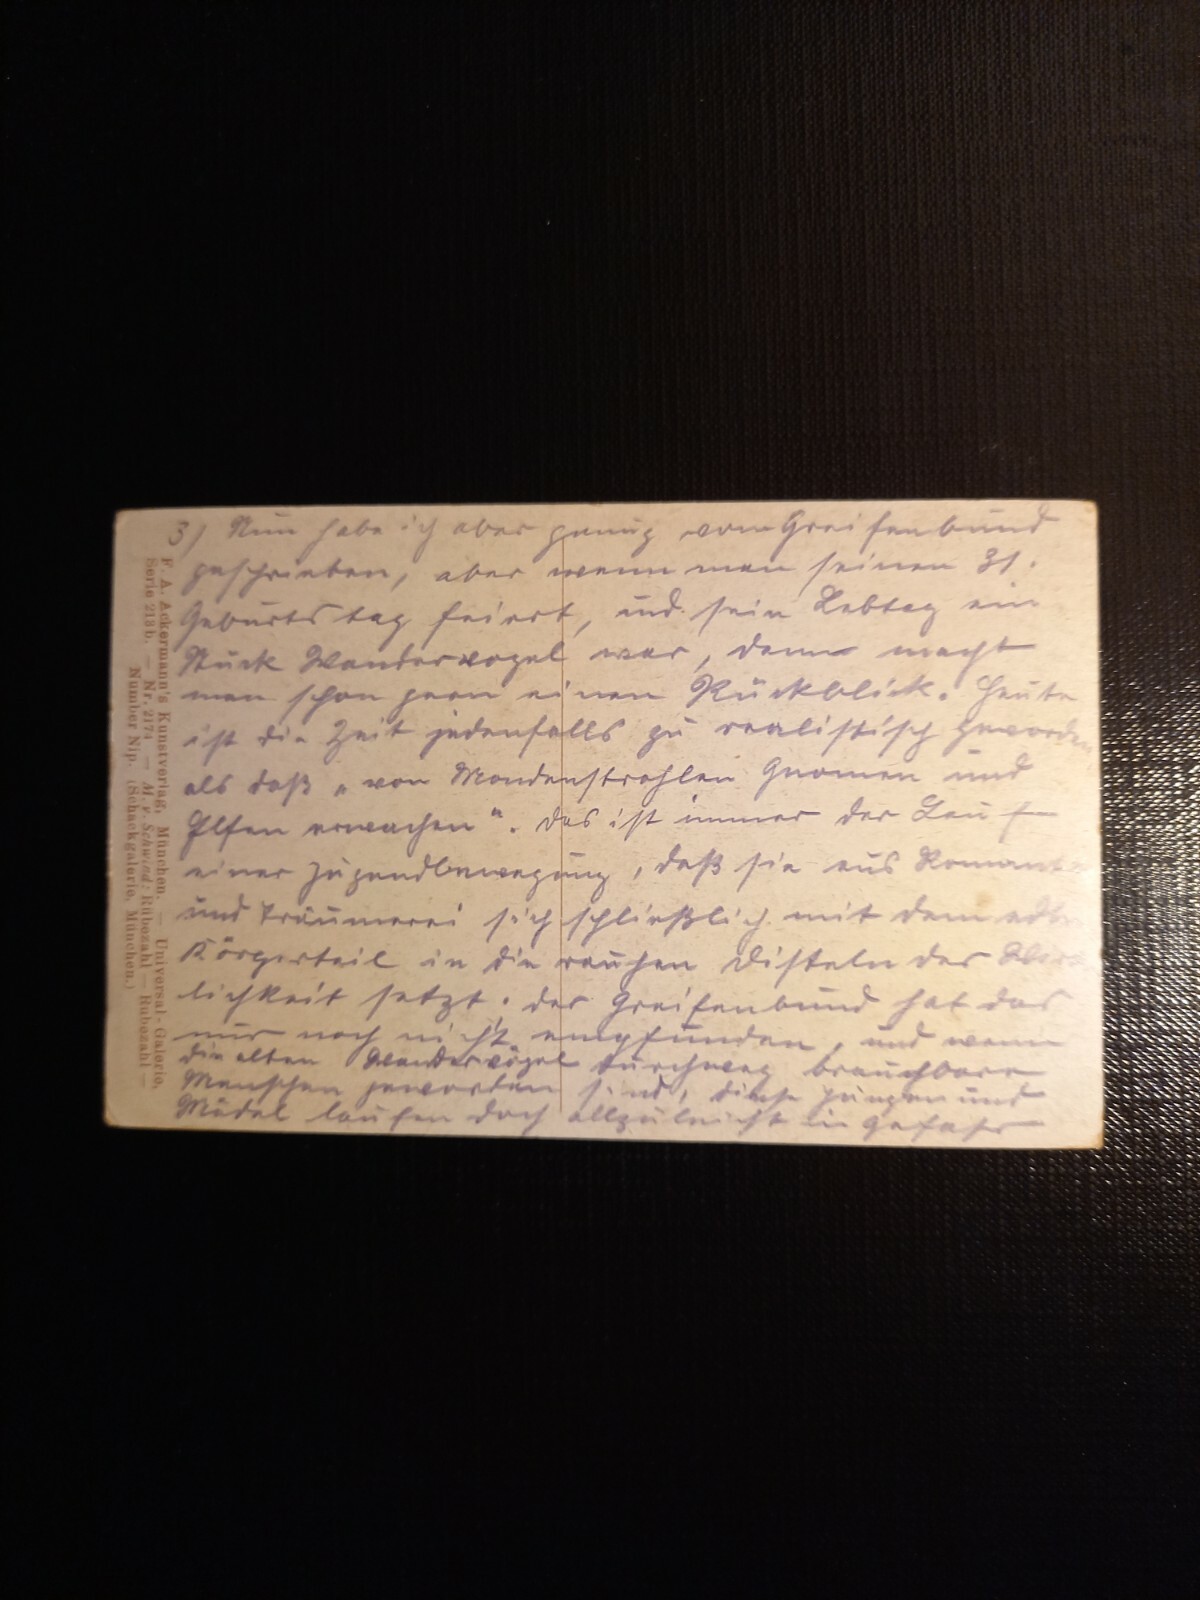 3) Nun habe ich aber genug vom Greifenbund
geschrieben, aber wenn man seinen 31.
Geburtstag feiert, und sein Lebtag ein
Stück Wandervogel war, dann macht
man schon gern einen Rückblick. Heute
ist die Zeit jedenfalls zu realistisch geworden
als daß „von Mondenstrahlen Gnomen und
Elfen erwachen“. Das ist immer der Lauf
einer Jugendbewegung, daß sie aus Romantik
und Träumerei sich schließlich mit dem edlen
Körperteil in die rauhen Disteln der Wirk-
lichkeit setzt. Der Greifenbund hat das
nur noch nicht empfunden, und wenn
die alten Wandervögel durchweg brauchbare
Menschen geworden sind, diese Jungen und
Mädel laufen doch allzuleicht in Gefahr
F. A. Ackermann's Kunstverlag, München. — Universal-Galerie,
Serie 213b. — Nr. 2174 — M. v. Schwind: Rübezahl — Rubezahl —
Number Nip. (Schackgalerie, München.)